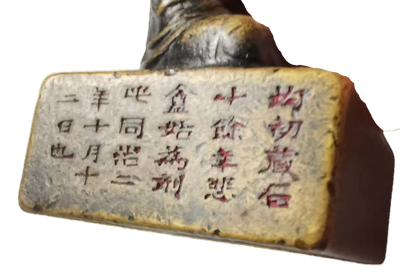 均初藏石
十餘年悲
盦始爲刻
此同治二
年十月十
二日也